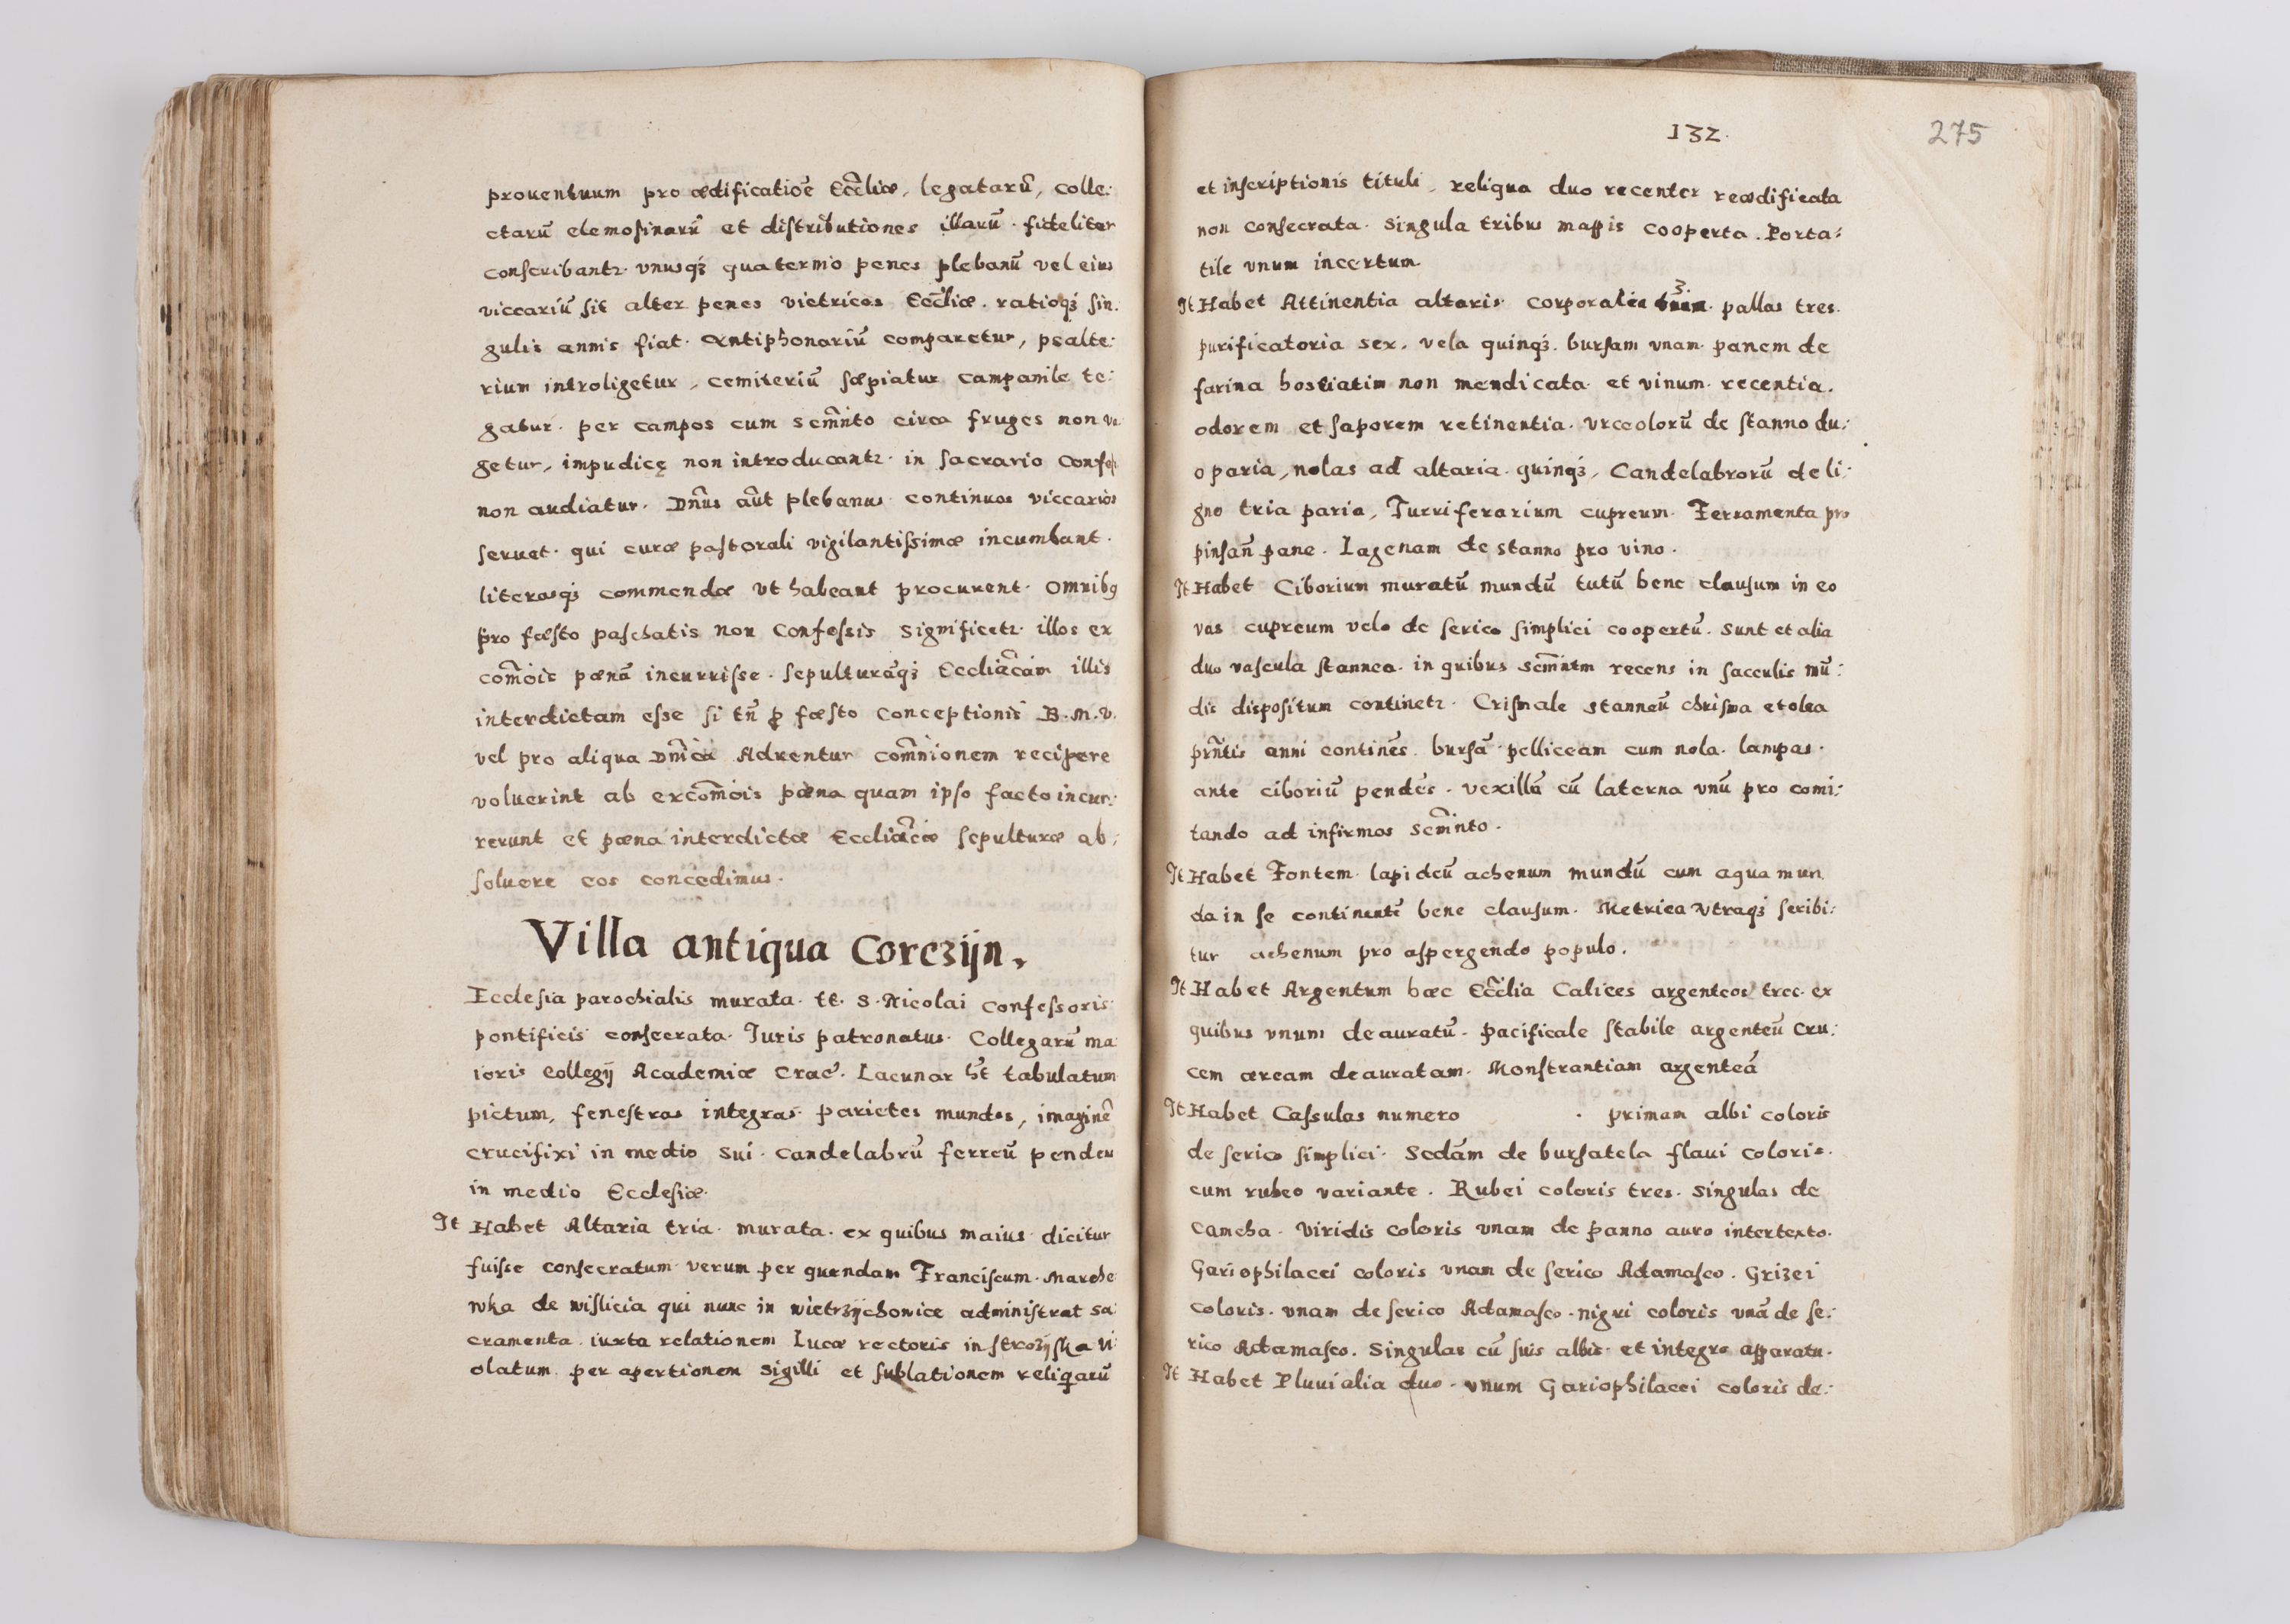 prouentuum pro ædificatiõe Ecc̃liæ, legatarũ, colle:
ctarũ elemosinarũ et distributiones illarũ fideliter
conscribantr. vnusq̃ quaternio penes plebanũ vel eius
viccariũ sit alter penes vietricos Ecc̃liæ. ratioq̃ sin:
gulis annis fiat. Antiphonariũ comparetur, psalte:
rium introligetur, cemiteriũ sæpiatur campanile te:
gatur. per campos cum Sacm̃nto circa fruges non va
getur, impudicę non introducantr. in sacrario confes
non audiatur. Dñus aũt plebanus continuos viccarios
seruet. qui curæ pastorali vigilantissimæ incumbant.
literasq̃ commendæ vt habeant procurent. Omnibꝯ
pro fæsto paschatis non Confessis significetr. illos ex
com̃ois pænã incurrisse. sepulturãq̃ Eccliãcam illis
interdictam esse si tñ ꝓ fæsto Conceptionis B.M.V.
vel pro aliqua Dñica Aduentus com̃nionem recipere
voluerint ab excom̃ois pæna quam ipso facto incur:
rerunt et pæna interdictæ Eccliãcæ sepulturæ ab:
soluere eos concedimus.
Villa antiqua Corczijn.
Ecclesia parochialis murata. tt. S. Nicolai Confessoris
pontificis consecrata. Iuris patronatus. Collegarũ ma
ioris Collegij Academiæ Crac. Lacunar h̃t tabulatum
pictum, fenestras integras parietes mundos, imaginẽ
crucifixi in medio sui. Candelabrũ ferreũ penden
in medio Ecclesiæ.
It Habet Altaria tria. murata. ex quibus maius dicitur
fuisse consecratum verum per quendam Franciscum. Marche
wka de wislicia qui nunc in wietrzychowice administrat sa
cramenta iuxta relationem Lucæ rectoris in strozyska vi:
olatum per apertionem Sigilli et sublationem reliqarũ
132.
275
et inscriptionis tituli, reliqua duo recenter reædificata
non consecrata. Singula tribus mappis cooperta. Porta:
tile vnum incertum.
3.
It Habet Attinentia altaris. Corporalia pallas tres.
purificatoria sex. vela quinq̃. bursam vnam. panem de
farina hostiatim non mendicata et vinum. recentia.
odorem et saporem retinentia. Vrceolorũ de stanno du:
o paria, nolas ad altaria quinq̃, Candelabrorũ de li:
gno tria paria, Turriferarium cupreum. Ferramenta pro
pinsañ pane. Lagenam de stanno pro vino.
It Habet Ciborium muratũ mundũ tutũ bene clausum in eo
vas cupreum velo de serico simplici coopertũ. Sunt et alia
duo vascula stannea. in quibus sacm̃ntm recens in sacculis mũ:
dis dispositum continetr. Crismale stanneũ chrisma et olea
pr̃ntis anni continẽs. bursã pelliceam cum nola. lampas.
ante ciboriũ pendẽs. vexillũ cũ laterna vnũ pro comi:
tando ad infirmos Sacm̃nto.
It Habet Fontem lapideũ achenum mundũ cum aqua mun
da in se continentẽ bene clausum. Metrica vtraq̃ scribi:
tur achenum pro aspergendo populo.
It Habet Argentum hæc Ecc̃lia Calices argenteos tres. ex
quibus vnum deauratũ. pacificale stabile argenteũ Cru:
cem æream deauratam. Monstrantiam argenteã
It Habet Cassulas numero . primam albi coloris
de serico simplici. Sedãm de bursatela flaui coloris.
cum rubeo variante. Rubei coloris tres. singulas de
camcha. Viridis coloris vnam de panno auro intertexto.
Gariophilacei coloris vnam de serico Adamasco. Grizei
coloris. vnam de serico Adamasco. nigri coloris vnã de se:
rico Adamasco. Singulas cũ suis albis. et integro apparatu.
It Habet Pluuialia duo. vnum Gariophilacei coloris de: